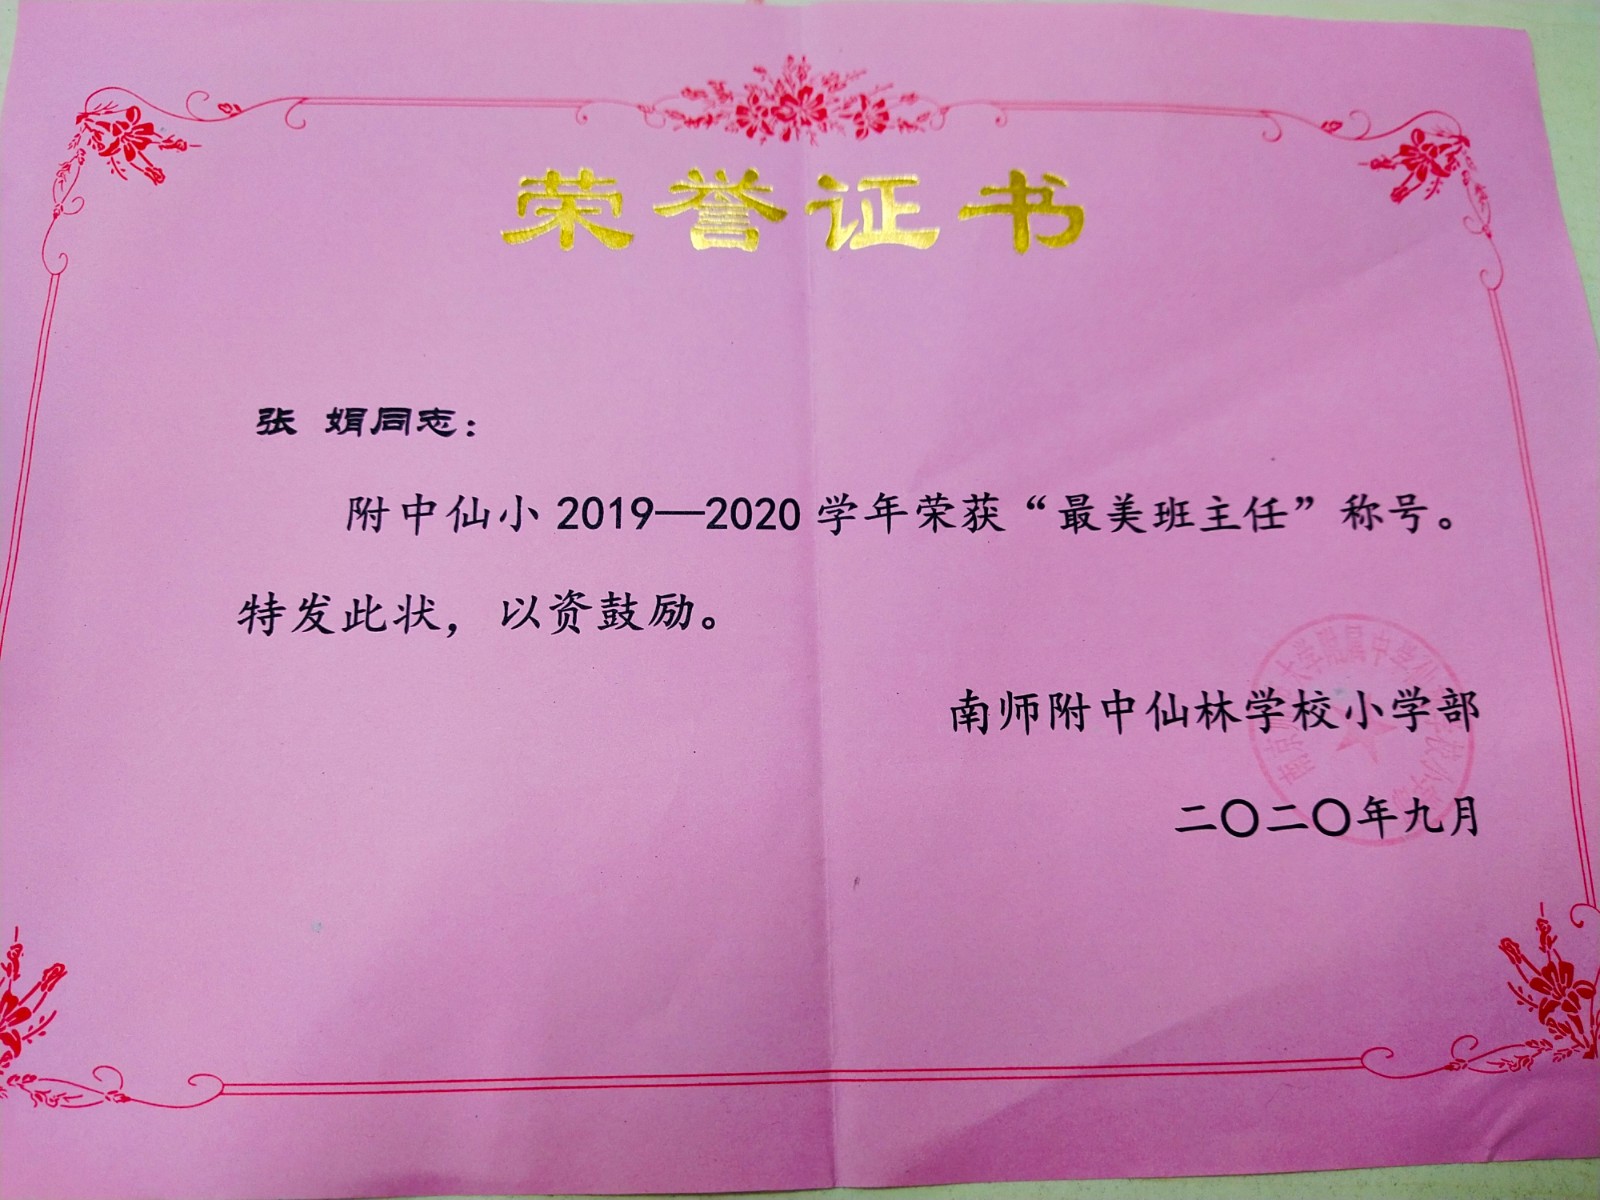 荣誉证书
张 娟同志：
附中仙小 2019—2020 学年荣获“最美班主任”称号。
特发此状，以资鼓励。
南师附中仙林学校小学部
二〇二〇年九月